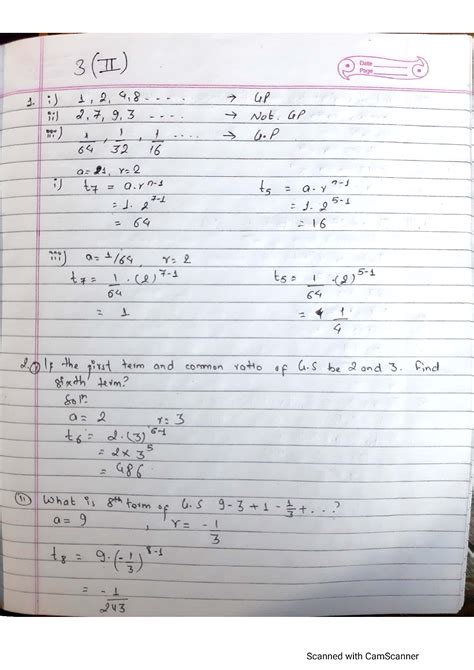 3 (II)
Date
Page
1. i) 1, 2, 4, 8 ..... → GP
ii) 2, 7, 9, 3 .... → Not. GP
iii) 1/64, 1/32, 1/16 .... → G.P
a=1, r=2
i) t7 = a.r^n-1    t5 = a.r^n-1
= 1. 2^7-1    = 1. 2^5-1
= 64    = 16
iii) a = 1/64, r = 2
t7 = 1/64 . (2)^7-1    t5 = 1/64 . (2)^5-1
= 1    = 1/4
2. i) If the first term and common ratio of G.S be 2 and 3. Find
sixth term?
Soln.
a = 2    r = 3
t6 = 2.(3)^6-1
= 2 × 3^5
= 486
ii) What is 8th term of G.S 9 - 3 + 1 - 1/3 + ... ?
a = 9 , r = - 1/3
t8 = 9.(- 1/3)^8-1
= - 1/243
Scanned with CamScanner